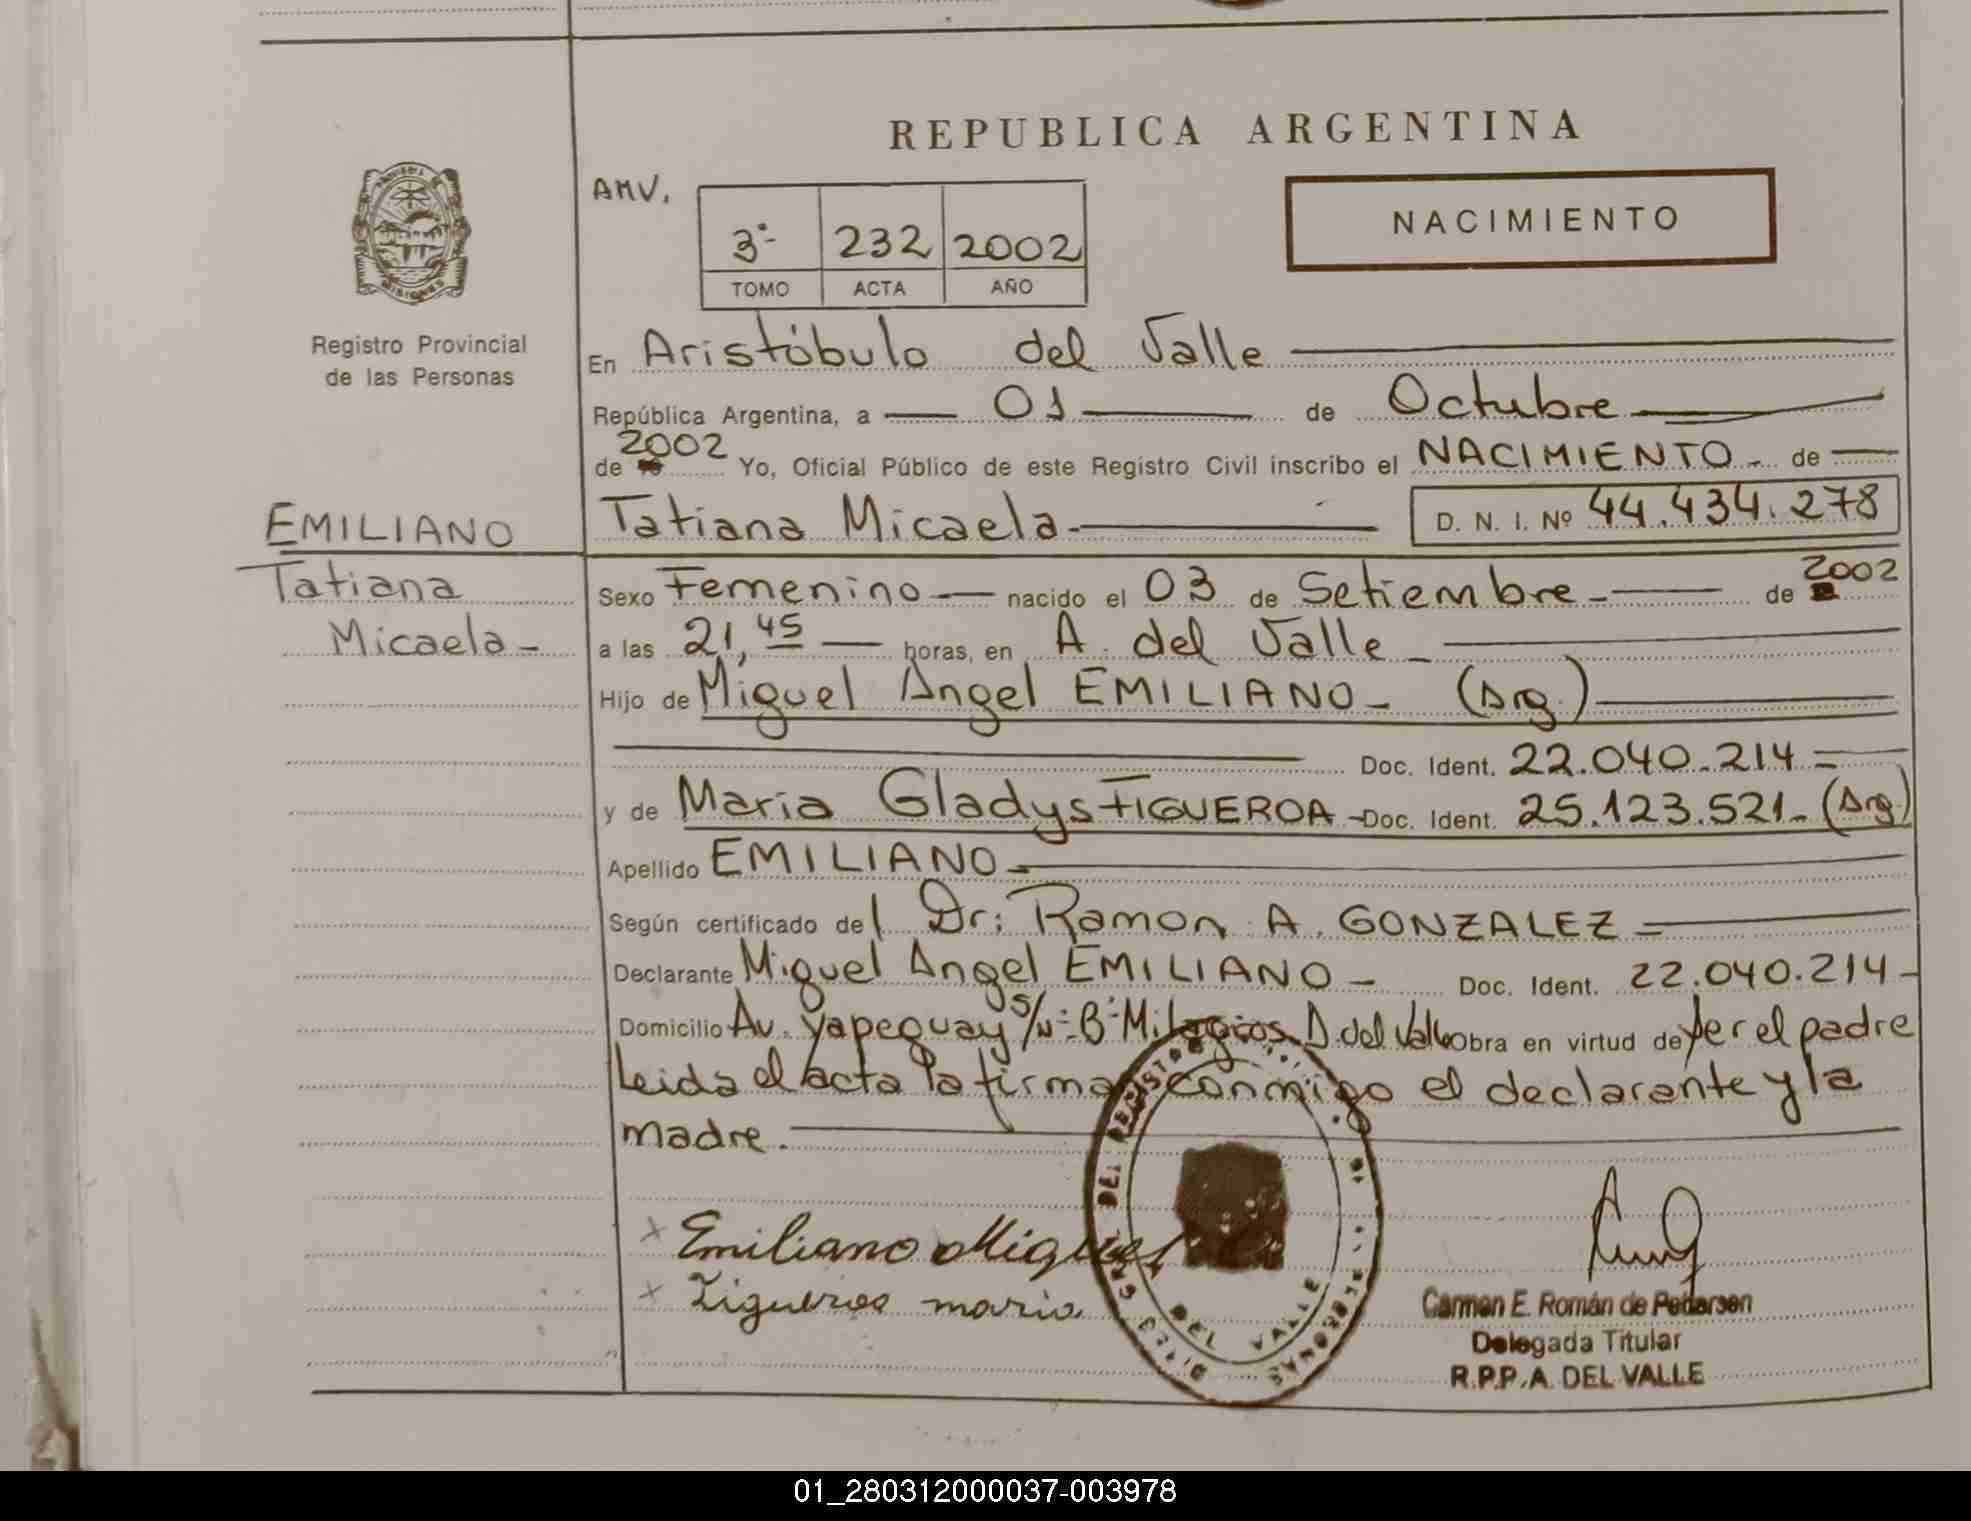 REPUBLICA ARGENTINA
AMV.
3º- 232 2002
TOMO ACTA AÑO
NACIMIENTO
MISIONES
Registro Provincial
de las Personas
En Aristóbulo del Valle
República Argentina, a 01 de Octubre
de 2002 Yo, Oficial Público de este Registro Civil inscribo el NACIMIENTO - de
Tatiana Micaela - D. N. I. Nº 44.434.278
EMILIANO
Tatiana
Micaela -
Sexo Femenino nacido el 03 de Setiembre - de 2002
a las 21,45 horas, en A. del Valle -
Hijo de Miguel Angel EMILIANO - (Arg.)
Doc. Ident. 22.040.214
y de Maria Gladys FIGUEROA - Doc. Ident. 25.123.521 - (Arg.)
Apellido EMILIANO -
Según certificado del Dr: Ramon A. GONZALEZ
Declarante Miguel Angel EMILIANO - Doc. Ident. 22.040.214 -
Domicilio Av. Yapeguay S/Nº B° Milagros A. del Valle obra en virtud de ser el padre
Leida el acta la firman conmigo el declarante y la
madre.
x Emiliano Miguel
x Figueroa maria
DEL VALLE
Carmen E. Román de Pedersen
Delegada Titular
R.P.P. A. DEL VALLE
01_280312000037-003978